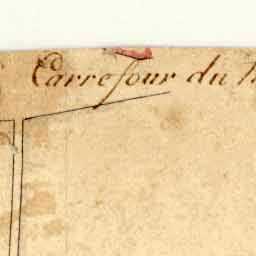 Carrefour du